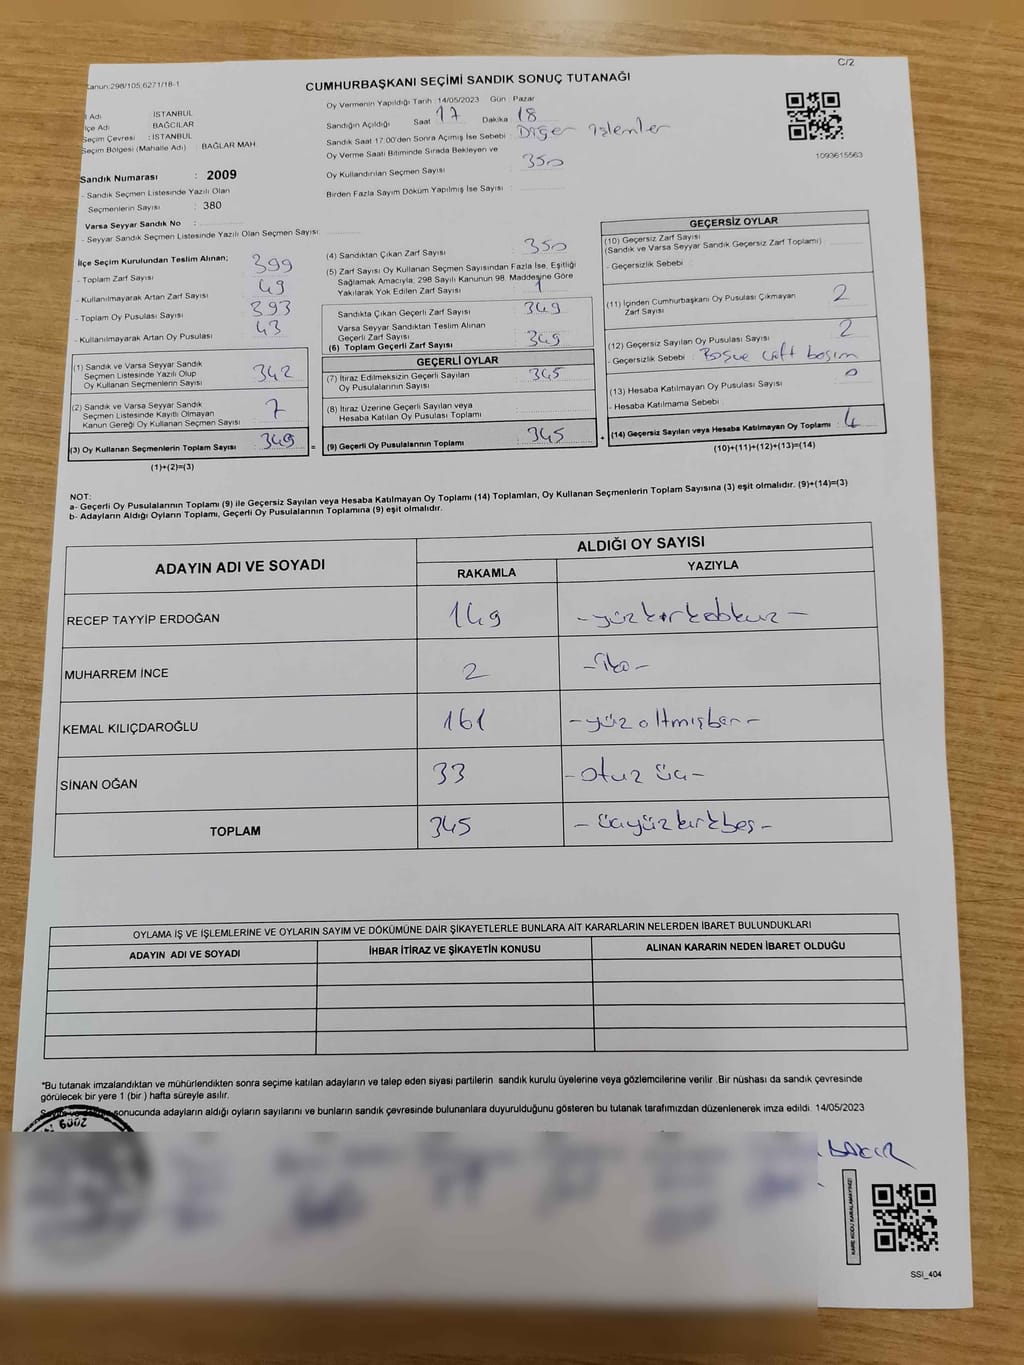 C/2
Kanun:298/105,6271/18-1
CUMHURBAŞKANI SEÇİMİ SANDIK SONUÇ TUTANAĞI
İl Adı : İSTANBUL
İlçe Adı : BAĞCILAR
Seçim Çevresi : İSTANBUL
Seçim Bölgesi (Mahalle Adı) : BAĞLAR MAH.
Oy Vermenin Yapıldığı Tarih :14/05/2023 Gün : Pazar
Sandığın Açıldığı Saat 17 Dakika 18
Sandık Saat 17:00'den Sonra Açılmış İse Sebebi : Diğer işlemler
Oy Verme Saati Bitiminde Sırada Bekleyen ve
Oy Kullandırılan Seçmen Sayısı : 350
Birden Fazla Sayım Döküm Yapılmış İse Sayısı :
1093615563
Sandık Numarası : 2009
- Sandık Seçmen Listesinde Yazılı Olan
Seçmenlerin Sayısı : 380
Varsa Seyyar Sandık No :
- Seyyar Sandık Seçmen Listesinde Yazılı Olan Seçmen Sayısı:
İlçe Seçim Kurulundan Teslim Alınan;
- Toplam Zarf Sayısı : 399
- Kullanılmayarak Artan Zarf Sayısı : 49
- Toplam Oy Pusulası Sayısı : 393
- Kullanılmayarak Artan Oy Pusulası : 43
(1) Sandık ve Varsa Seyyar Sandık
Seçmen Listesinde Yazılı Olup
Oy Kullanan Seçmenlerin Sayısı : 342
(2) Sandık ve Varsa Seyyar Sandık
Seçmen Listesinde Kayıtlı Olmayan
Kanun Gereği Oy Kullanan Seçmen Sayısı : 7
(3) Oy Kullanan Seçmenlerin Toplam Sayısı : 349
(1)+(2)=(3)
(4) Sandıktan Çıkan Zarf Sayısı : 350
(5) Zarf Sayısı Oy Kullanan Seçmen Sayısından Fazla İse, Eşitliği
Sağlamak Amacıyla; 298 Sayılı Kanunun 98. Maddesine Göre
Yakılarak Yok Edilen Zarf Sayısı : 1
Sandıkta Çıkan Geçerli Zarf Sayısı : 349
Varsa Seyyar Sandıktan Teslim Alınan
Geçerli Zarf Sayısı
(6) Toplam Geçerli Zarf Sayısı : 349
GEÇERLİ OYLAR
(7) İtiraz Edilmeksizin Geçerli Sayılan
Oy Pusulalarının Sayısı : 345
(8) İtiraz Üzerine Geçerli Sayılan veya
Hesaba Katılan Oy Pusulası Toplamı :
= (9) Geçerli Oy Pusulalarının Toplamı : 345 +
GEÇERSİZ OYLAR
(10) Geçersiz Zarf Sayısı
(Sandık ve Varsa Seyyar Sandık Geçersiz Zarf Toplamı) :
- Geçersizlik Sebebi :
(11) İçinden Cumhurbaşkanı Oy Pusulası Çıkmayan
Zarf Sayısı : 2
(12) Geçersiz Sayılan Oy Pusulası Sayısı : 2
- Geçersizlik Sebebi : Boşve çift basım
(13) Hesaba Katılmayan Oy Pusulası Sayısı : 0
- Hesaba Katılmama Sebebi :
(14) Geçersiz Sayılan veya Hesaba Katılmayan Oy Toplamı : 4
(10)+(11)+(12)+(13)=(14)
NOT:
a- Geçerli Oy Pusulalarının Toplamı (9) ile Geçersiz Sayılan veya Hesaba Katılmayan Oy Toplamı (14) Toplamları, Oy Kullanan Seçmenlerin Toplam Sayısına (3) eşit olmalıdır. (9)+(14)=(3)
b- Adayların Aldığı Oyların Toplamı, Geçerli Oy Pusulalarının Toplamına (9) eşit olmalıdır.
ADAYIN ADI VE SOYADI
ALDIĞI OY SAYISI
RAKAMLA YAZIYLA
RECEP TAYYİP ERDOĞAN 149 -yüzkırkdokuz-
MUHARREM İNCE 2 -iki-
KEMAL KILIÇDAROĞLU 161 -yüzaltmışbir-
SİNAN OĞAN 33 -otuz üç-
TOPLAM 345 -üçyüzkırkbeş-
OYLAMA İŞ VE İŞLEMLERİNE VE OYLARIN SAYIM VE DÖKÜMÜNE DAİR ŞİKAYETLERLE BUNLARA AİT KARARLARIN NELERDEN İBARET BULUNDUKLARI
ADAYIN ADI VE SOYADI İHBAR İTİRAZ VE ŞİKAYETİN KONUSU ALINAN KARARIN NEDEN İBARET OLDUĞU
*Bu tutanak imzalandıktan ve mühürlendikten sonra seçime katılan adayların ve talep eden siyasi partilerin sandık kurulu üyelerine veya gözlemcilerine verilir .Bir nüshası da sandık çevresinde
görülecek bir yere 1 (bir ) hafta süreyle asılır.
sonucunda adayların aldığı oyların sayılarını ve bunların sandık çevresinde bulunanlara duyurulduğunu gösteren bu tutanak tarafımızdan düzenlenerek imza edildi. 14/05/2023
2009
BAKIR
KARE KODU KARALAMAYINIZ!
SSİ_404